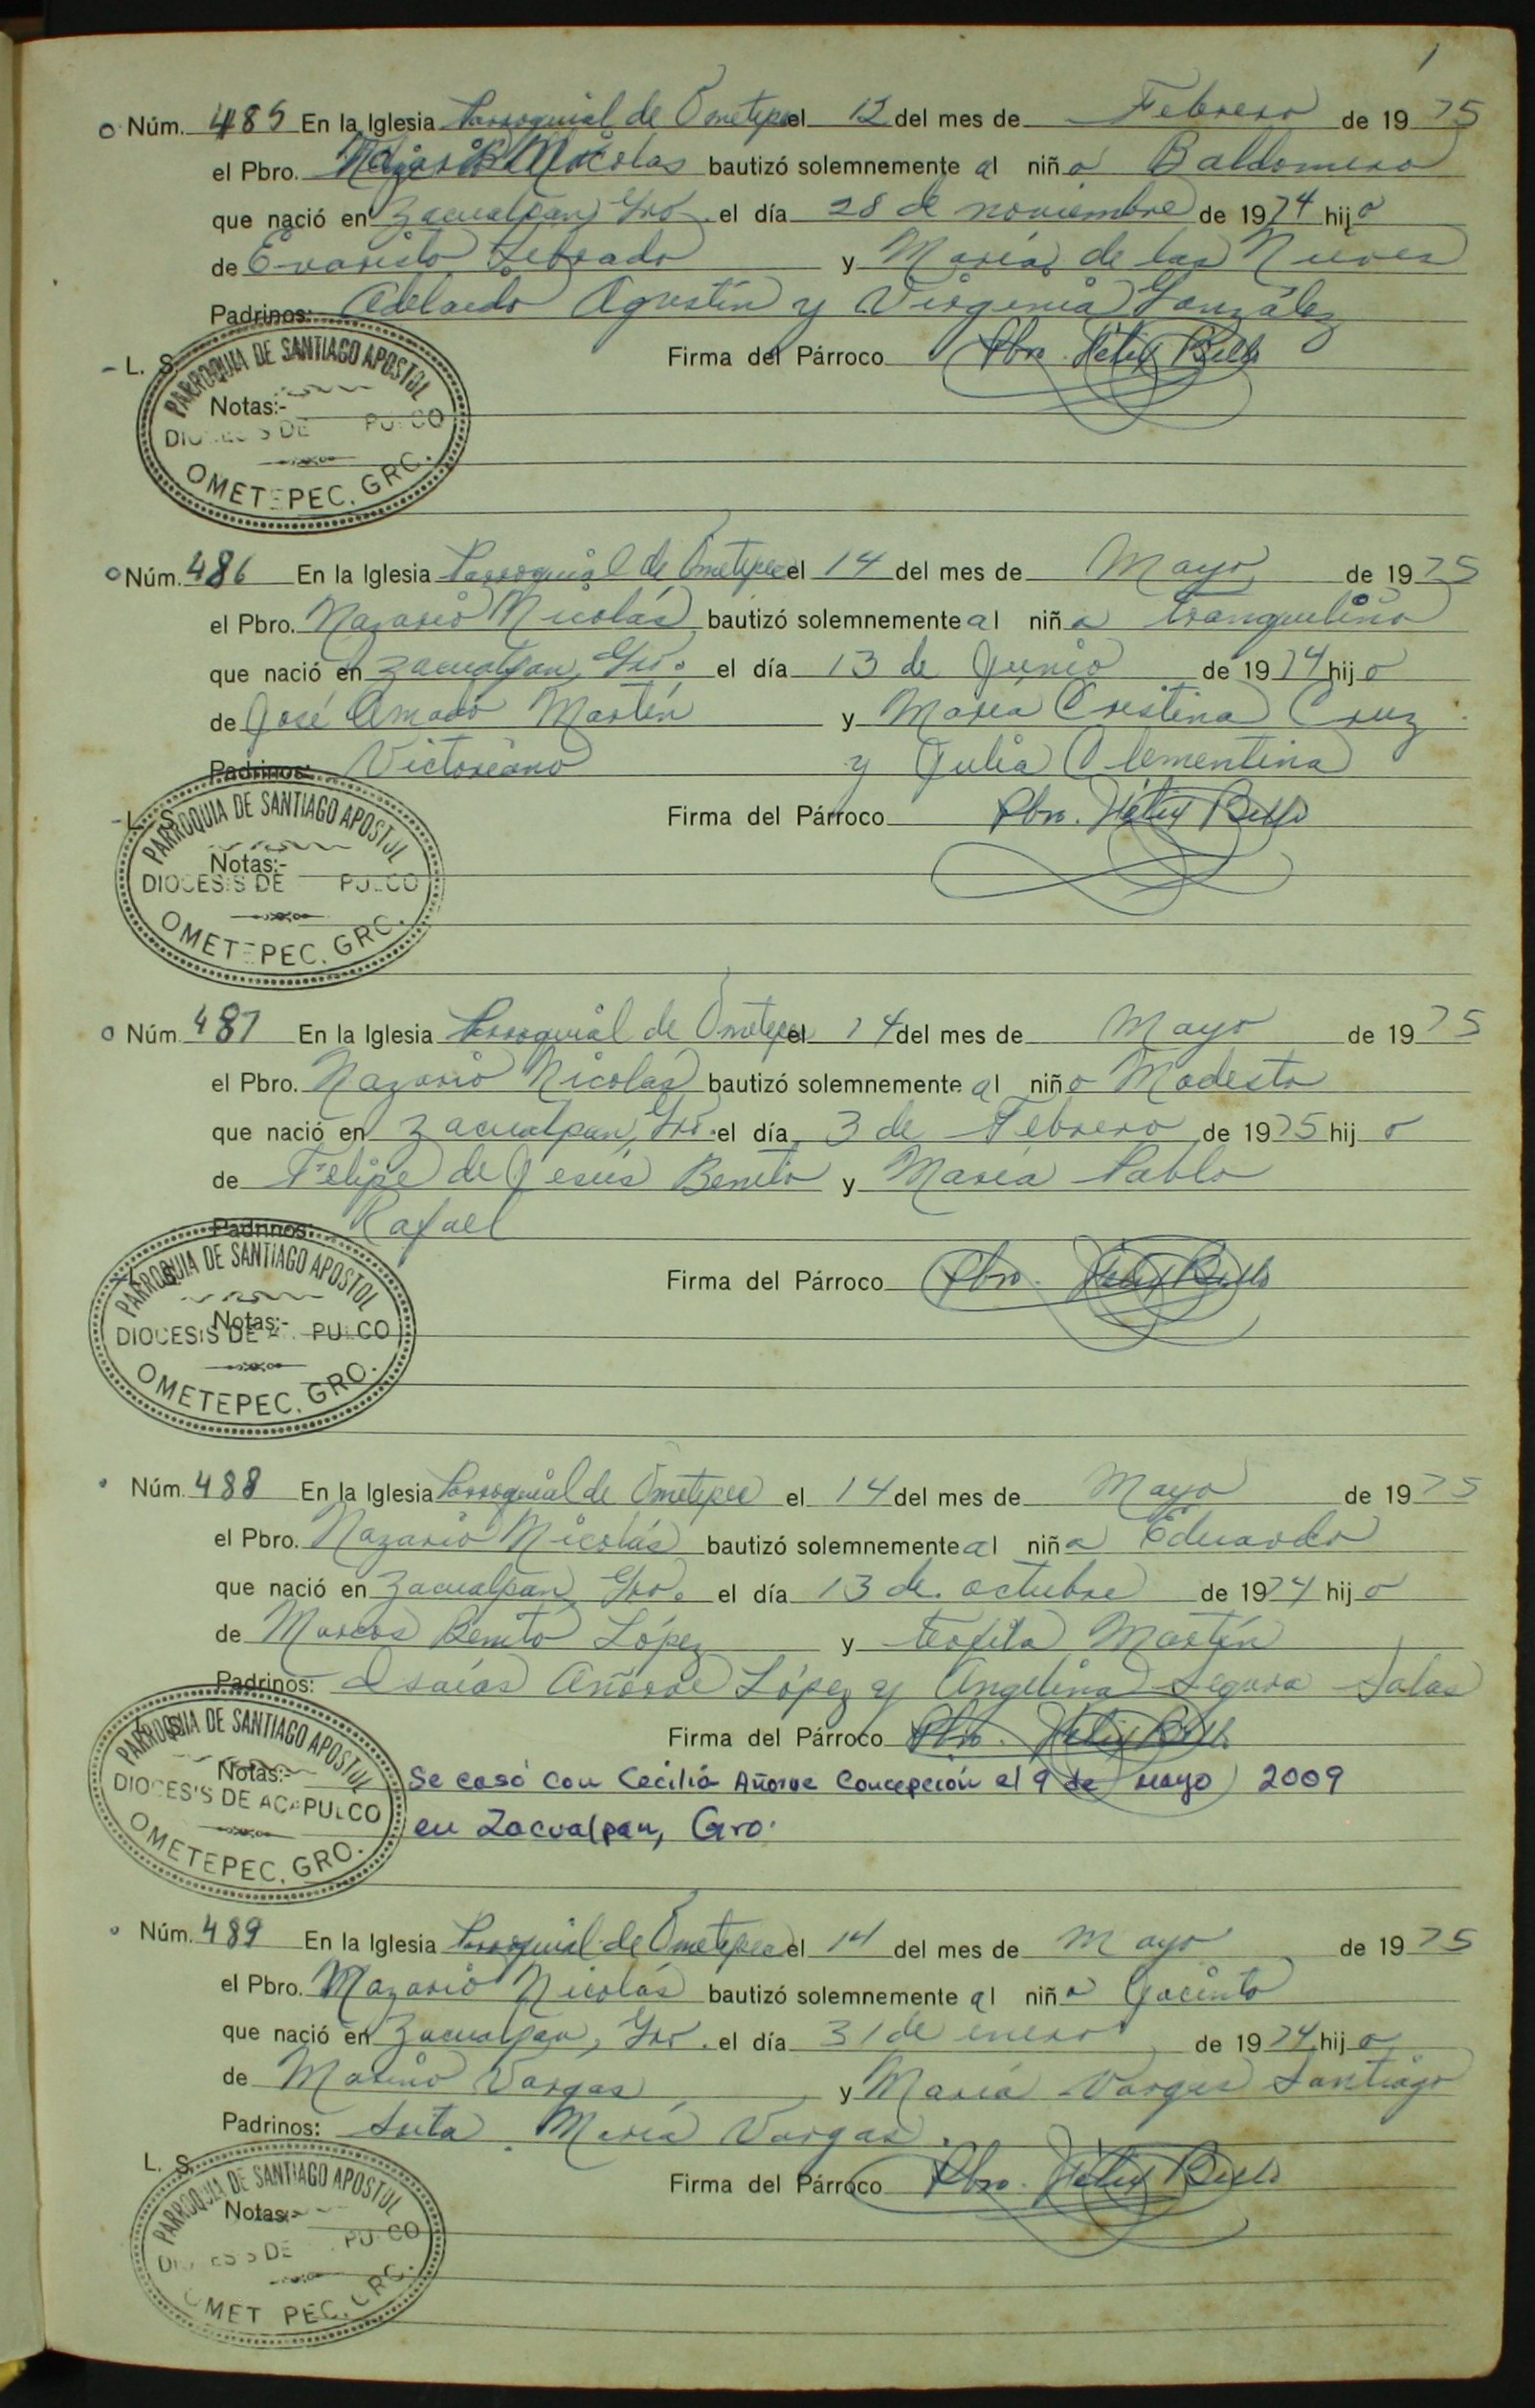 1
Núm. 485 En la Iglesia Parroquial de Ometepec el 12 del mes de Febrero de 1975
el Pbro. Nazario Nicolás bautizó solemnemente al niño Baldomero
que nació en Zacualpan, Gro. el día 28 de noviembre de 1974 hijo
de Evaristo Librado y María de las Nieves
Padrinos: Adelaido Agustín y Virginia González
L. S. Firma del Párroco Pbro. Félix Bello
PARROQUIA DE SANTIAGO APOSTOL
Notas:-
OMETEPEC, GRO.
Núm. 486 En la Iglesia Parroquial de Ometepec el 14 del mes de Mayo de 1975
el Pbro. Nazario Nicolás bautizó solemnemente al niño tranquilino
que nació en Zacualpan, Gro. el día 13 de Junio de 1974 hijo
de José Amado Martín y María Cristina Cruz
Padrinos: Victoriano y Julia Clementina
L. S. Firma del Párroco Pbro. Félix Bello
PARROQUIA DE SANTIAGO APOSTOL
Notas:-
DIOCESIS DE
OMETEPEC, GRO.
Núm. 487 En la Iglesia Parroquial de Ometepec el 14 del mes de Mayo de 1975
el Pbro. Nazario Nicolás bautizó solemnemente al niño Modesto
que nació en Zacualpan, Gro. el día 3 de Febrero de 1975 hijo
de Felipe de Jesús Benito y María Pablo
Padrinos: Rafael
Firma del Párroco Pbro. Félix Bello
PARROQUIA DE SANTIAGO APOSTOL
Notas:-
DIOCESIS DE ACAPULCO
OMETEPEC, GRO.
Núm. 488 En la Iglesia Parroquial de Ometepec el 14 del mes de Mayo de 1975
el Pbro. Nazario Nicolás bautizó solemnemente al niño Eduardo
que nació en Zacualpan Gro. el día 13 de octubre de 1974 hijo
de Marcos Benito López y teofila Martín
Padrinos: Isaías Añorve López y Angelina Segura Salas
Firma del Párroco Pbro. Félix Bello
PARROQUIA DE SANTIAGO APOSTOL
Notas:- Se casó con Cecilia Añorve Concepción el 9 de mayo 2009
DIOCESIS DE ACAPULCO
en Zacualpan, Gro.
OMETEPEC, GRO.
Núm. 489 En la Iglesia Parroquial de Ometepec el 14 del mes de Mayo de 1975
el Pbro. Nazario Nicolás bautizó solemnemente al niño Jacinto
que nació en Zacualpan, Gro. el día 31 de enero de 1974 hijo
de Marino Vargas y María Vargas Santiago
Padrinos: María Vargas.
L. S. Firma del Párroco Pbro. Félix Bello
PARROQUIA DE SANTIAGO APOSTOL
Notas:-
OMETEPEC, GRO.